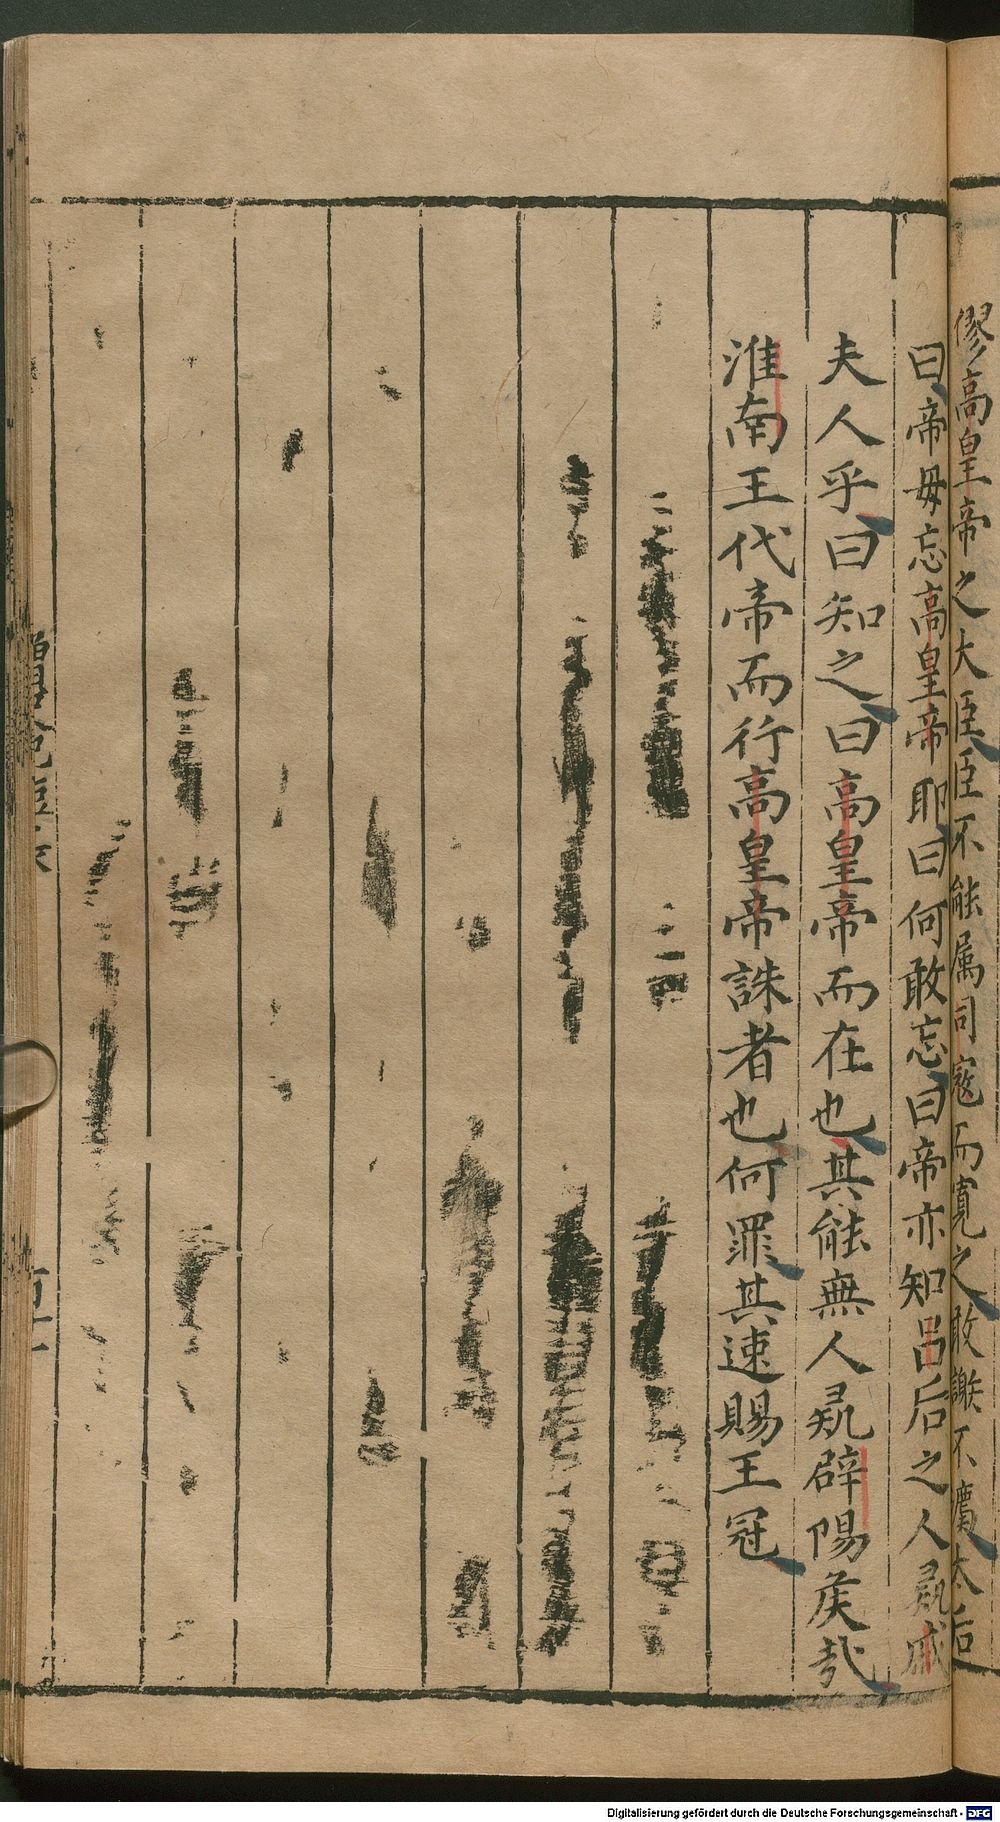 繆高皇帝之大臣臣不能属司寇而寛之敢謝不
太后
曰帝毋忘高皇帝耶曰何敢忘曰帝亦知吕后之人彘戚
夫人乎曰知之曰高皇帝而在也其能無人彘辟陽侯哉
淮南王代帝而行高皇帝誅者也何罪其速賜王冠
Digitalisierung gefördert durch die Deutsche Forschungsgemeinschaft - DFG